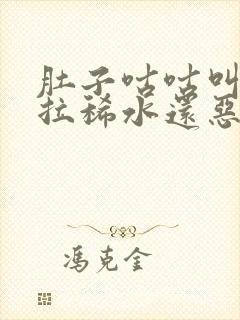 肚子咕咕叫
拉稀水還惡
馮克金